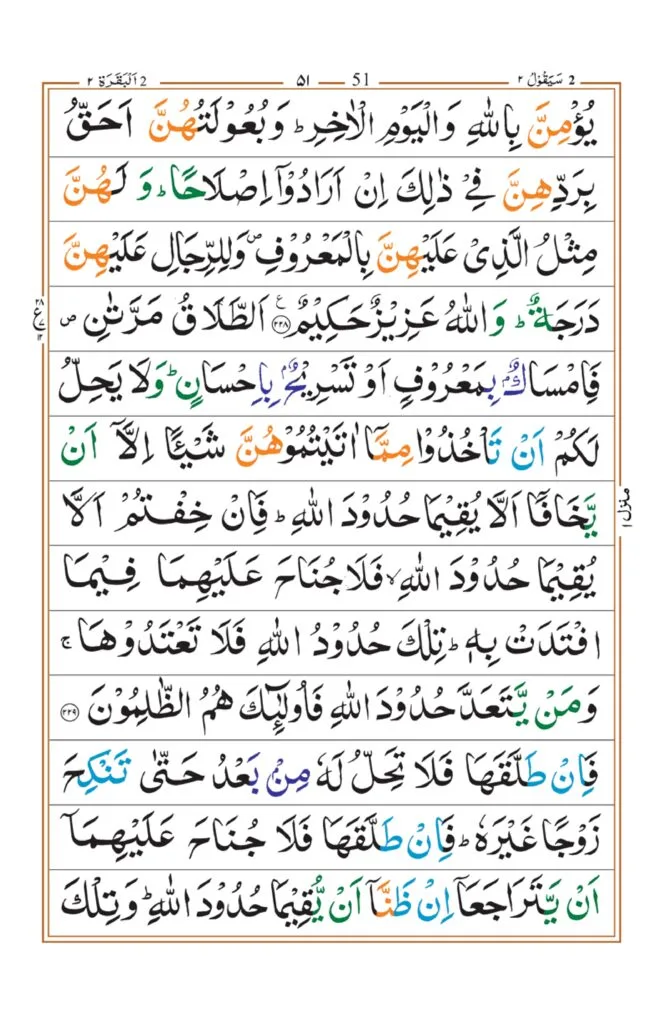 2 سَيَقُوْلُ ٢ 51 ٥١ 2 اَلْبَقَرَة ٢
يُؤْمِنَّ بِاللّٰهِ وَالْيَوْمِ الْاٰخِرِ ؕ وَبُعُوْلَتُهُنَّ اَحَقُّ
بِرَدِّهِنَّ فِيْ ذٰلِكَ اِنْ اَرَادُوْۤا اِصْلَاحًا ؕ وَ لَهُنَّ
مِثْلُ الَّذِيْ عَلَيْهِنَّ بِالْمَعْرُوْفِ ۪ وَلِلرِّجَالِ عَلَيْهِنَّ
دَرَجَةٌ ؕ وَاللّٰهُ عَزِيْزٌ حَكِيْمٌ ۧ ﴿٢٢٨﴾ اَلطَّلَاقُ مَرَّتٰنِ ۪
ع ٢٨ ١٢
فَاِمْسَاكٌۢ بِمَعْرُوْفٍ اَوْ تَسْرِيْحٌۢ بِاِحْسَانٍ ؕ وَلَا يَحِلُّ
لَكُمْ اَنْ تَاْخُذُوْا مِمَّاۤ اٰتَيْتُمُوْهُنَّ شَيْـًٔا اِلَّاۤ اَنْ
يَّخَافَاۤ اَلَّا يُقِيْمَا حُدُوْدَ اللّٰهِ ؕ فَاِنْ خِفْتُمْ اَلَّا
منزل ١
يُقِيْمَا حُدُوْدَ اللّٰهِ ۙ فَلَا جُنَاحَ عَلَيْهِمَا فِيْمَا
افْتَدَتْ بِهٖ ؕ تِلْكَ حُدُوْدُ اللّٰهِ فَلَا تَعْتَدُوْهَا ۚ
وَمَنْ يَّتَعَدَّ حُدُوْدَ اللّٰهِ فَاُولٰٓئِكَ هُمُ الظّٰلِمُوْنَ ﴿٢٢٩﴾
فَاِنْ طَلَّقَهَا فَلَا تَحِلُّ لَهٗ مِنْۢ بَعْدُ حَتّٰى تَنْكِحَ
زَوْجًا غَيْرَهٗ ؕ فَاِنْ طَلَّقَهَا فَلَا جُنَاحَ عَلَيْهِمَاۤ
اَنْ يَّتَرَاجَعَاۤ اِنْ ظَنَّاۤ اَنْ يُّقِيْمَا حُدُوْدَ اللّٰهِ ؕ وَتِلْكَ